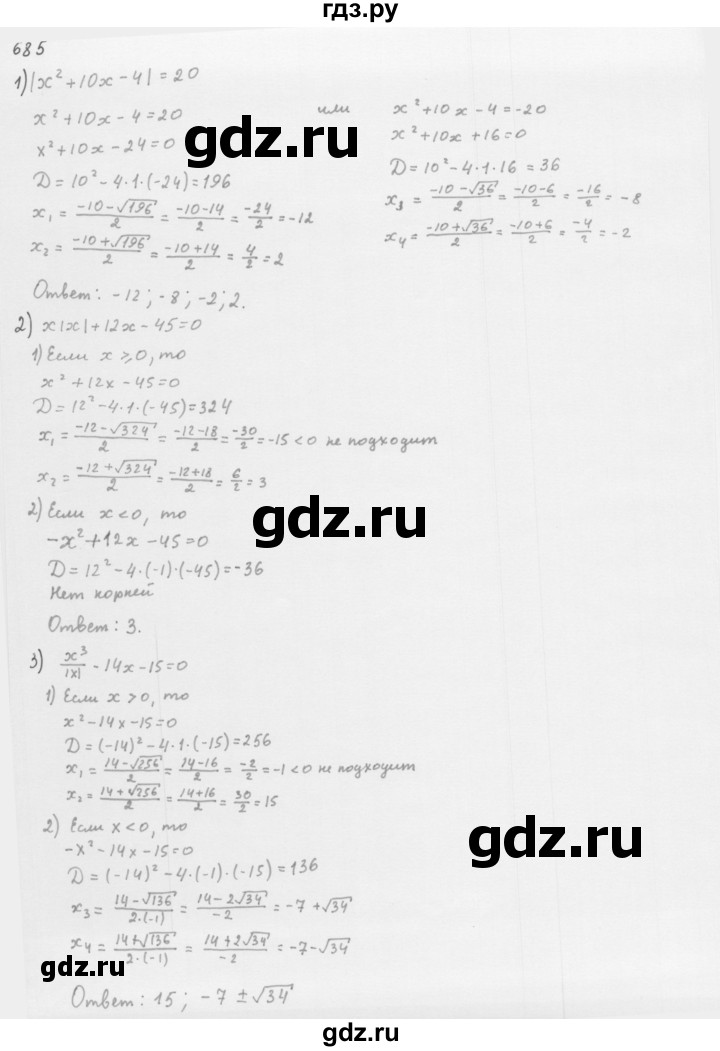 гдз.ру
685
1) |x² + 10x − 4| = 20
x² + 10x − 4 = 20 или x² + 10x − 4 = −20
x² + 10x − 24 = 0 x² + 10x + 16 = 0
gdz.ru
D = 10² − 4·1·(−24) = 196 D = 10² − 4·1·16 = 36
x₁ = (−10 − √196)/2 = (−10−14)/2 = −24/2 = −12 x₃ = (−10 − √36)/2 = (−10−6)/2 = −16/2 = −8
x₂ = (−10 + √196)/2 = (−10+14)/2 = 4/2 = 2 x₄ = (−10 + √36)/2 = (−10+6)/2 = −4/2 = −2
Ответ: −12; −8; −2; 2.
2) x|x| + 12x − 45 = 0
1) Если x ⩾ 0, то
x² + 12x − 45 = 0
D = 12² − 4·1·(−45) = 324
x₁ = (−12 − √324)/2 = (−12−18)/2 = −30/2 = −15 < 0 не подходит
x₂ = (−12 + √324)/2 = (−12+18)/2 = 6/2 = 3
2) Если x < 0, то
gdz.ru
−x² + 12x − 45 = 0
D = 12² − 4·(−1)·(−45) = −36
Нет корней
Ответ: 3.
3) x³/|x| − 14x − 15 = 0
1) Если x > 0, то
x² − 14x − 15 = 0
D = (−14)² − 4·1·(−15) = 256
x₁ = (14 − √256)/2 = (14−16)/2 = −2/2 = −1 < 0 не подходит
x₂ = (14 + √256)/2 = (14+16)/2 = 30/2 = 15
2) Если x < 0, то
gdz.ru
−x² − 14x − 15 = 0
D = (−14)² − 4·(−1)·(−15) = 136
x₃ = (14 − √136)/(2·(−1)) = (14 − 2√34)/−2 = −7 + √34
x₄ = (14 + √136)/(2·(−1)) = (14 + 2√34)/−2 = −7 − √34
gdz.ru
Ответ: 15; −7 ± √34
gdz.ru